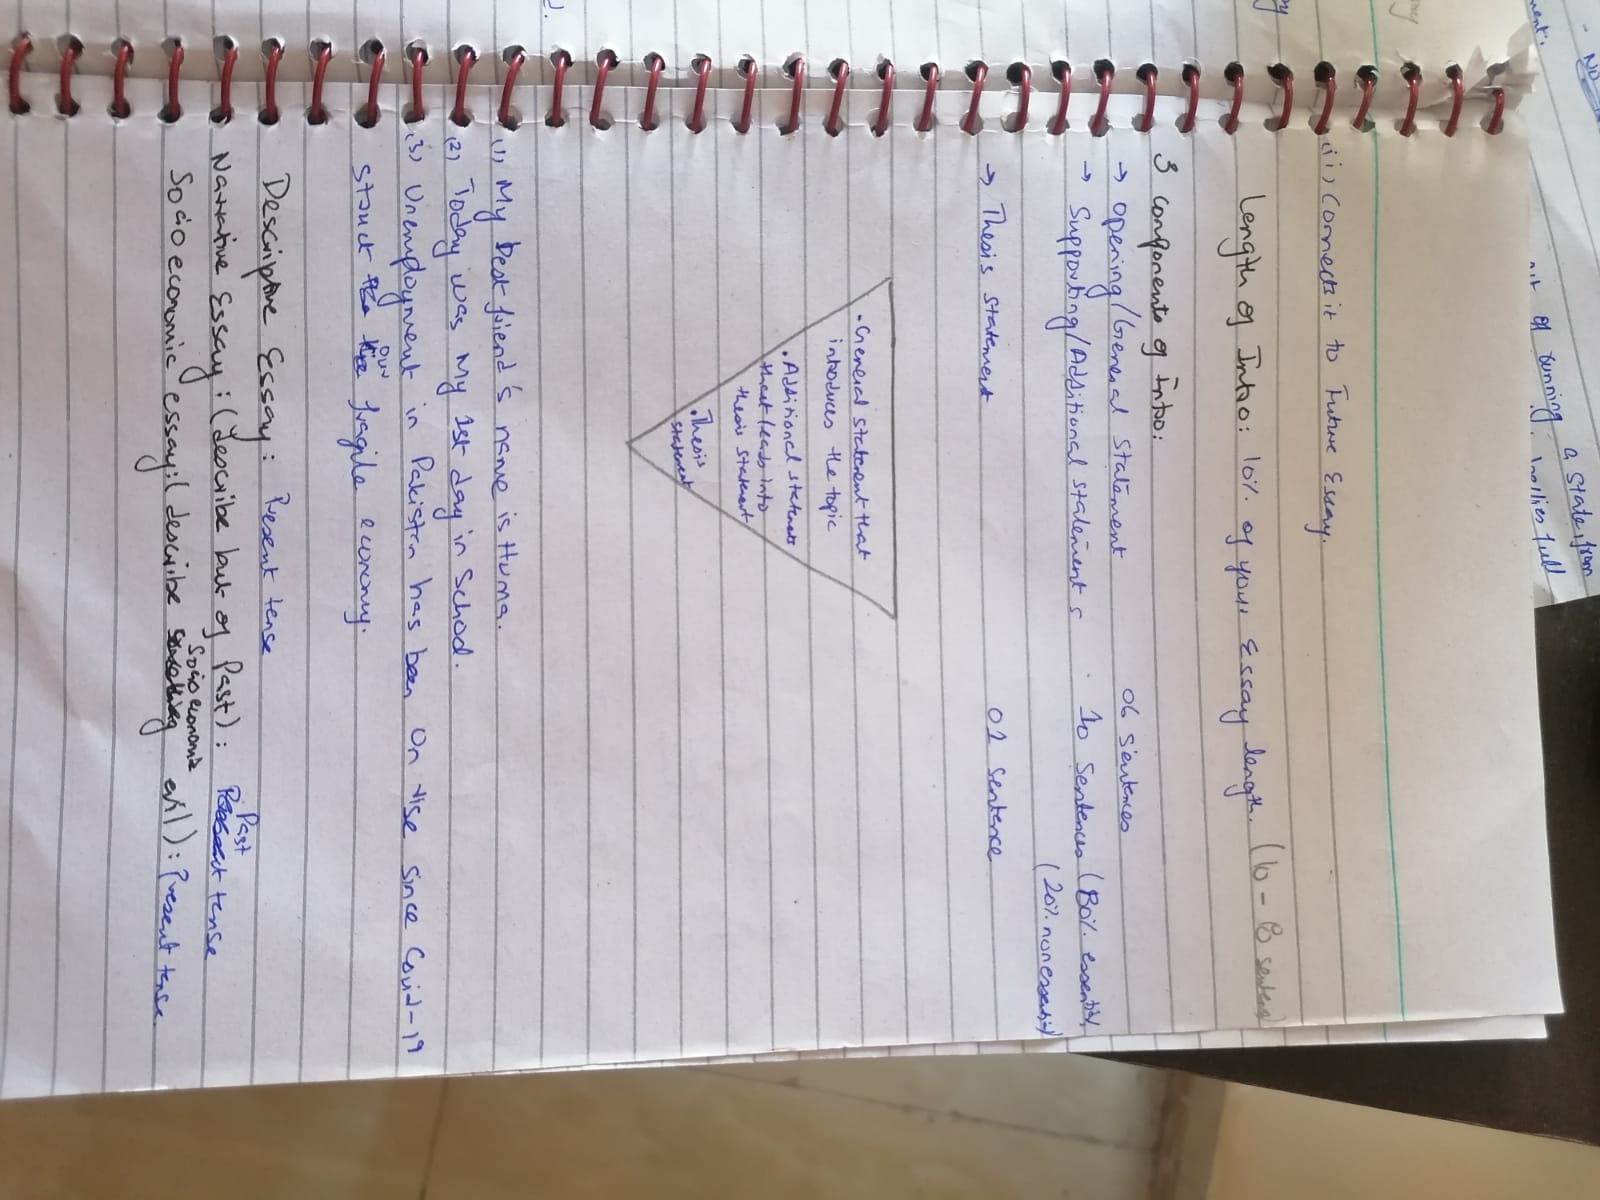 - No
a state, from
ment.
of running
bellies full
(ii) Connects it to Future Essay.
Length of Intro: 10% of your Essay length. (10 -
3 components of Intro:
→ Opening/General Statement 06 sentences
→ Supporting/Additional statements 10 Sentences (80% essential,
(20% non essential)
→ Thesis statement 01 sentence
• General statement that
introduces the topic
• Additional statements
that leads into
thesis statement
• Thesis
statement
d.
(1) My best friend's name is Huma.
(2) Today was My 1st day in School.
(3) Unemployment in Pakistan has been On rise since Covid-19
struck our fragile economy.
Descriptive Essay: Present tense
Narrative Essay: (describe but of Past): Past tense
Socio economic essay: (describe Socio economic evil): Present tense.